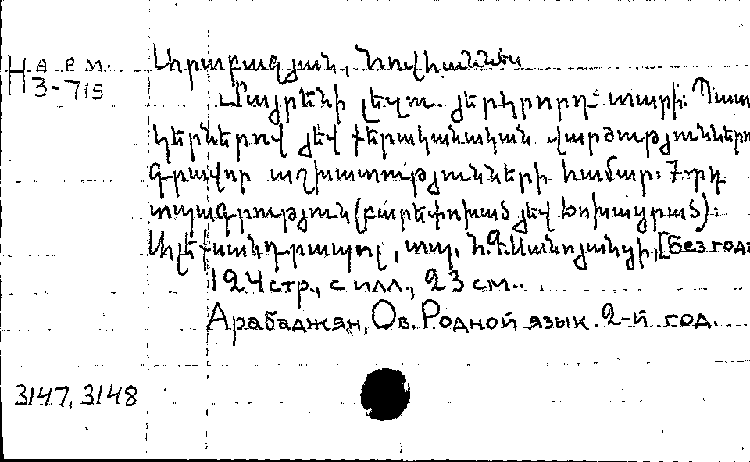 Н арм.
3-715
Արաբաջյան, Հովհաննես
Մայրենի լեզու. յերկրորդ տարի. Պատ
կերներով յեվ քերականական վարժություններո
գրավոր աշխատությունների համար. 7-րդ
տպագրություն (բարեփոխած յեվ խոխայրած).
Ալեքսանդրապոլ, տպ. Սանոյանցի, [без года
124 стр., с илл., 23 см.
Арабаджян, Ов. Родной язык. 2-й год.
3147, 3148